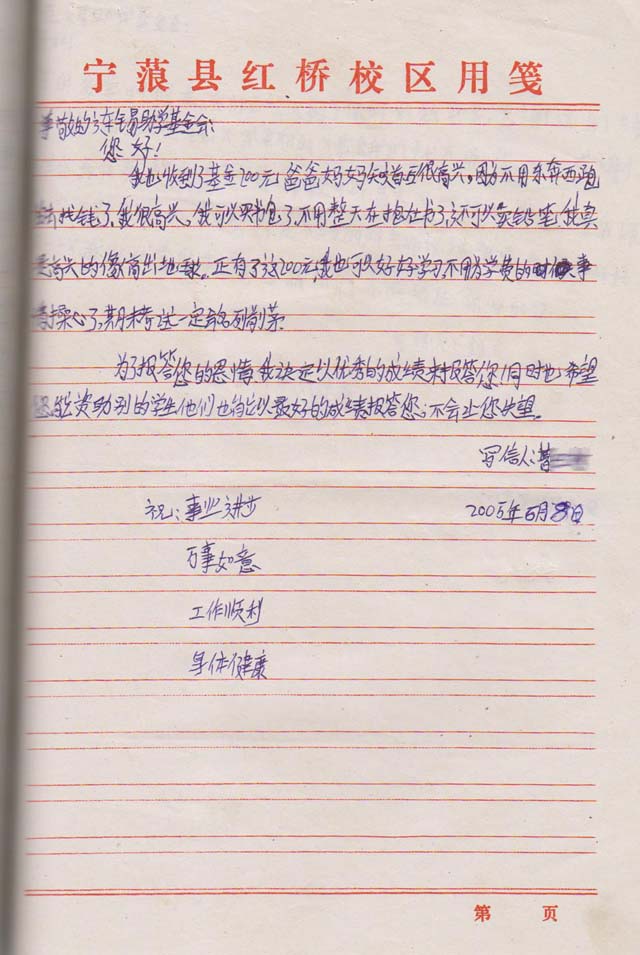 宁蒗县红桥校区用笺
敬的 助学基金会:
您好!
我也收到了基金200元,爸爸妈妈知道后很高兴。因为不用东奔西跑
去找钱了,我很高兴。我可以买书包了,不用整天在抱住书了,还可以卖铅笔,我真
高兴的像高出地球。正有了这200元,我也可以好好学习不用为学费的事
情操心了,期末考试一定会名列前茅.
为了报答您的恩情,我决定以优秀的成绩来报答您!同时也希望
您能资助别的学生他们也会以最好的成绩报答您,不会让您失望。
写信人:
祝:事业进步
2005年6月8日
万事如意
工作顺利
身体健康
第 页